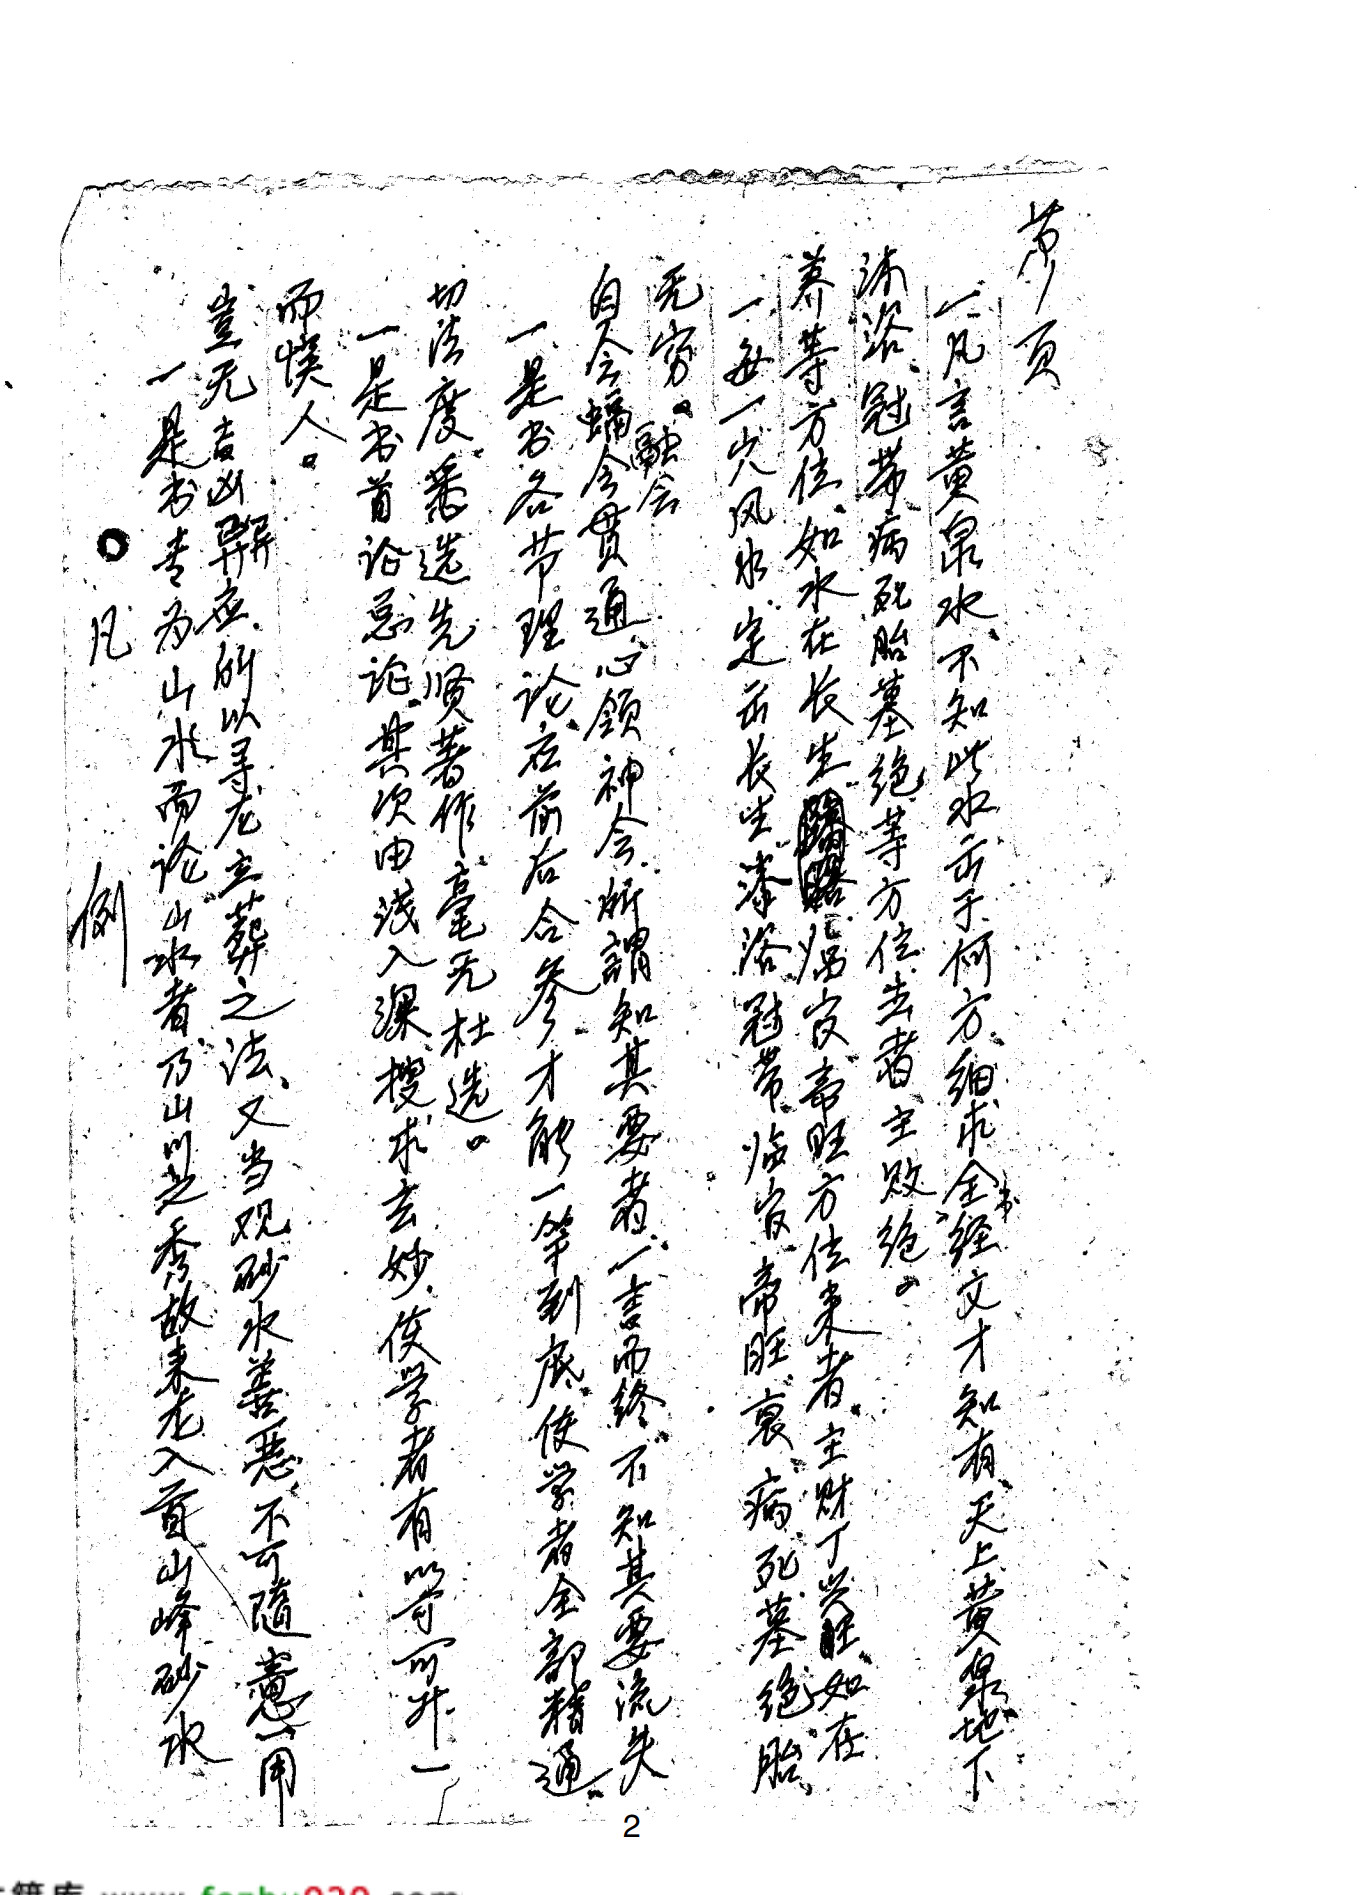 凡 例
一是书专为山水而论山水者、乃山川之秀故来龙入首山峰砂水
岂无吉凶辟应、所以寻龙立葬之法、又当观砂水善恶、不可随意用
而悮人。
一是书首论总论、其次由浅入深搜求玄妙、使学者有以可升、一
切法度、悉选先贤著作、毫无杜选。
一是书各节理论、在前后合参、才能一竿到底、使学者全部精通、
自会融会贯通、心领神会、所謂知其要者、一言而终、不知其要流失
无穷。
一、每一穴风水、定出长生、沐浴、冠带、临官、帝旺、衰、病、死、墓、绝、胎、
养等方位、如水在长生、临官、帝旺方位来者、主财丁兴旺、如在
沐浴、冠带、病死胎墓绝等方位去者、主败绝。
一、凡言黄泉水、不知此水出于何方、细求全书经文才知有、天上黄泉地下
页
2